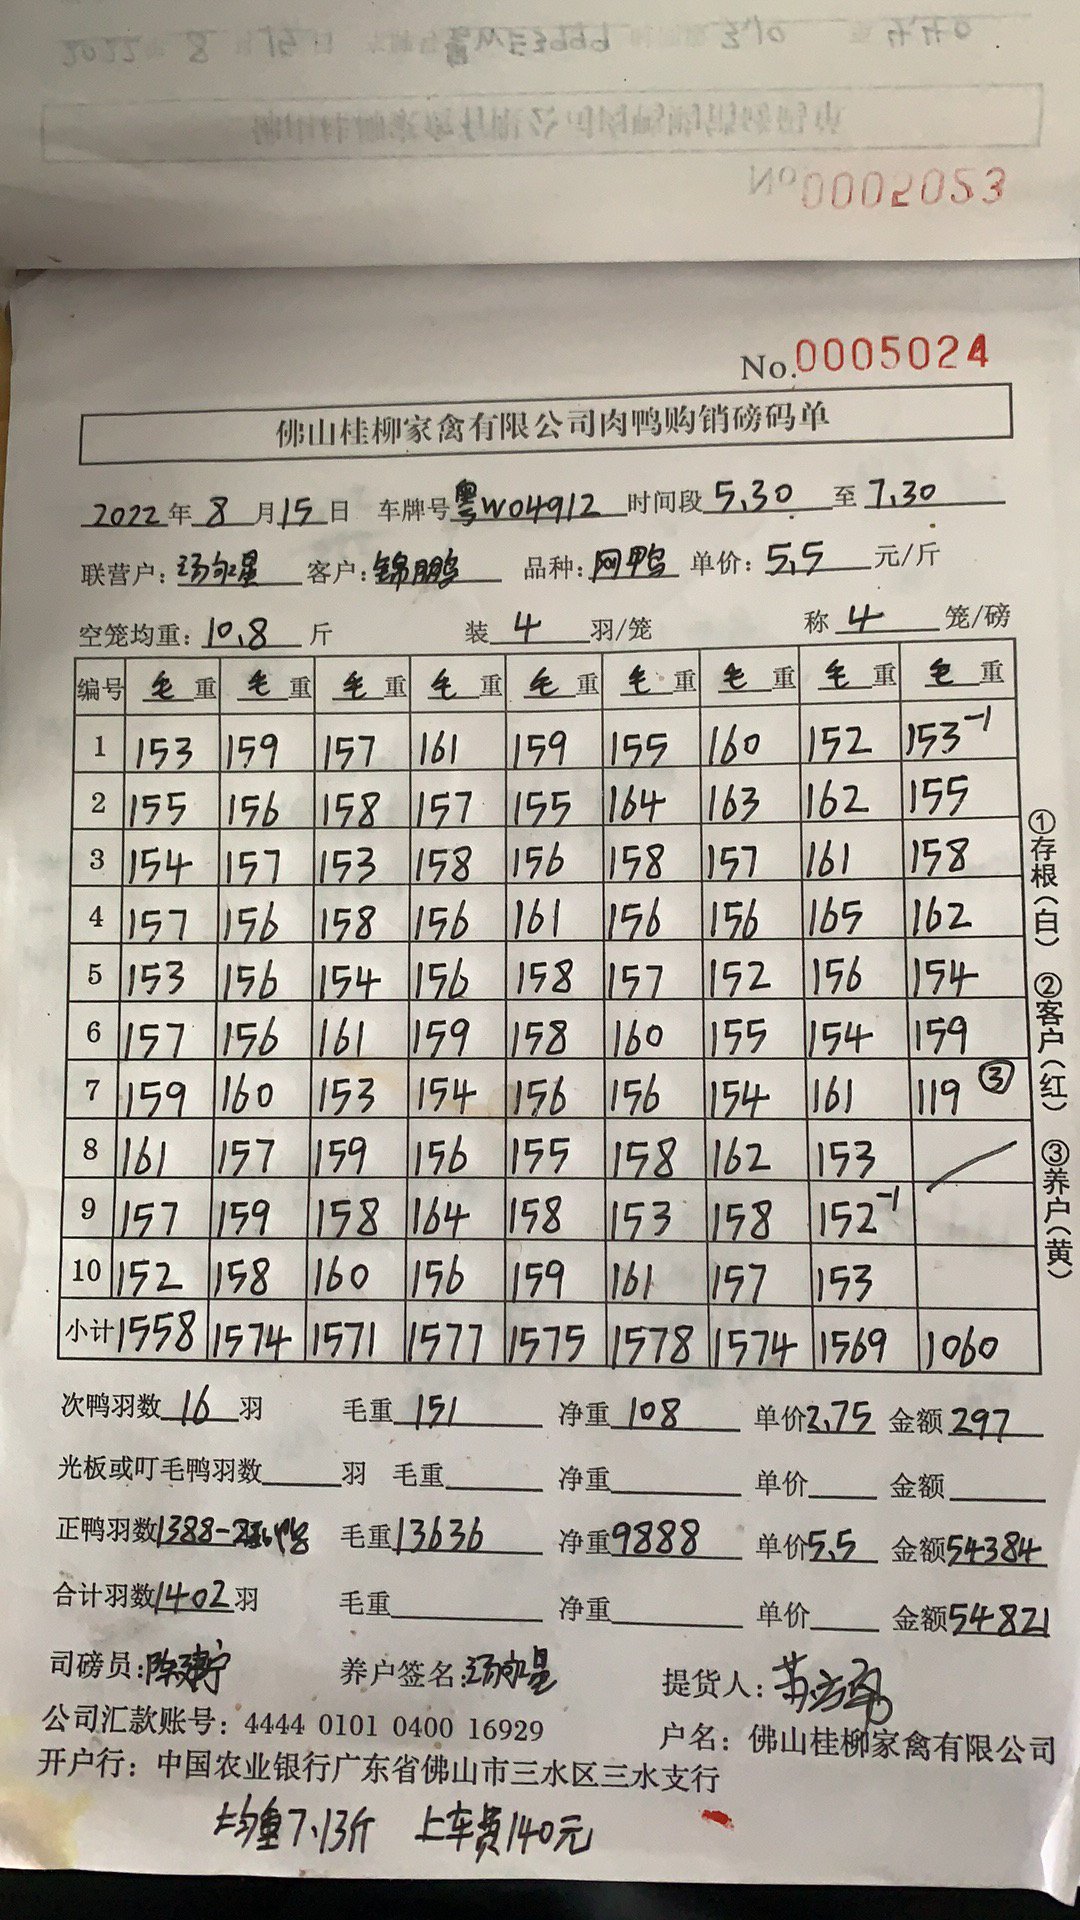 No.0005024
佛山桂柳家禽有限公司肉鸭购销磅码单
2022年8月15日 车牌号粤W04912 时间段5.30至7.30
联营户: 客户:锦鹏 品种: 单价:5.5元/斤
空笼均重:10.8斤 装4羽/笼 称4笼/磅
编号 毛重 毛重 毛重 毛重 毛重 毛重 毛重 毛重 毛重
1 153 159 157 161 159 155 160 152 153-1
2 155 156 158 157 155 164 163 162 155
3 154 157 153 158 156 158 157 161 158
4 157 156 158 156 161 156 156 165 162
5 153 156 154 156 158 157 152 156 154
6 157 156 161 159 158 160 155 154 159
7 159 160 153 154 156 156 154 161 119 ③
8 161 157 159 156 155 158 162 153
9 157 159 158 164 158 153 158 152-1
10 152 158 160 156 159 161 157 153
小计 1558 1574 1571 1577 1575 1578 1574 1569 1060
次鸭羽数16羽 毛重151 净重108 单价2.75 金额297
光板或叮毛鸭羽数 羽 毛重 净重 单价 金额
正鸭羽数1388 毛重13636 净重9888 单价5.5 金额54384
合计羽数1402羽 毛重 净重 单价 金额54821
司磅员: 养户签名: 提货人:
公司汇款账号:4444 0101 0400 16929 户名:佛山桂柳家禽有限公司
开户行:中国农业银行广东省佛山市三水区三水支行
均重7.13斤 上车费140元
①存根(白) ②客户(红) ③养户(黄)